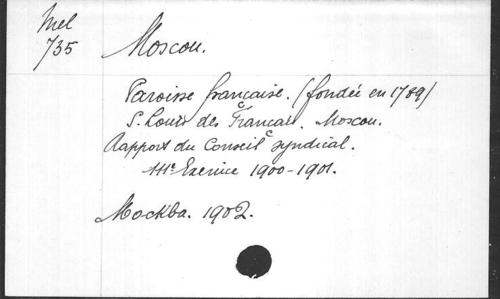 Mel
735
Moscou.
Paroisse française. (fondée en 1789)
S. Louis des Français. Moscou.
Rapport du Conseil syndical.
111e Exercice 1900-1901.
Москва. 1902.